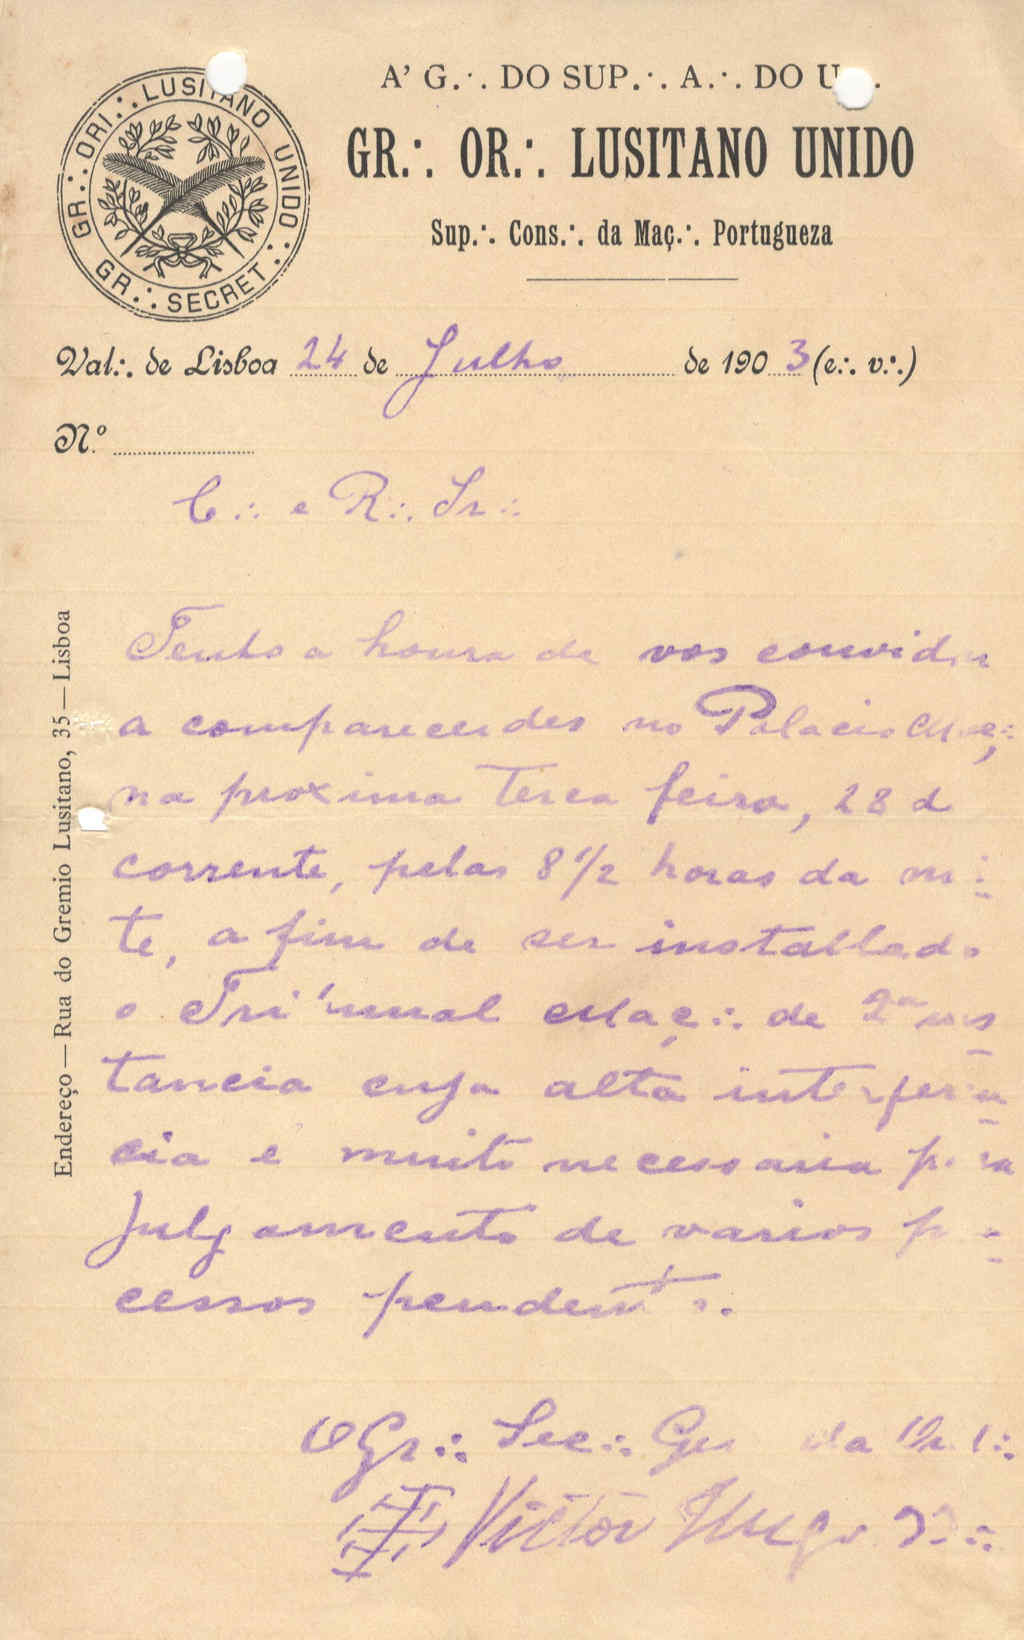 GR.∴ ORI.∴ LUSITANO UNIDO.∴
GR.∴ SECRET.∴
A' G.∴ DO SUP.∴ A.∴ DO U
GR.∴ OR.∴ LUSITANO UNIDO
Sup.∴ Cons.∴ da Maç.∴ Portugueza
Val.∴ de Lisboa 24 de Julho de 1903 (e.∴ v.∴)
N.º
C.∴ e R.∴ Ir.∴
Tenho a honra de vos convidar
a comparecerdes no Palacio Maç.∴
na proxima Terça feira, 28 d
corrente, pelas 8 1/2 horas da noi-
te, a fim de ser installado
o Tribunal Maç.∴ de 2ª ins-
tancia cuja alta interferen-
cia é muito necessaria para
julgamento de varios pro-
cessos pendentes.
O Gr.∴ Sec.∴ Ger da Or.∴
Victor Hugo
Endereço — Rua do Gremio Lusitano, 35 — Lisboa